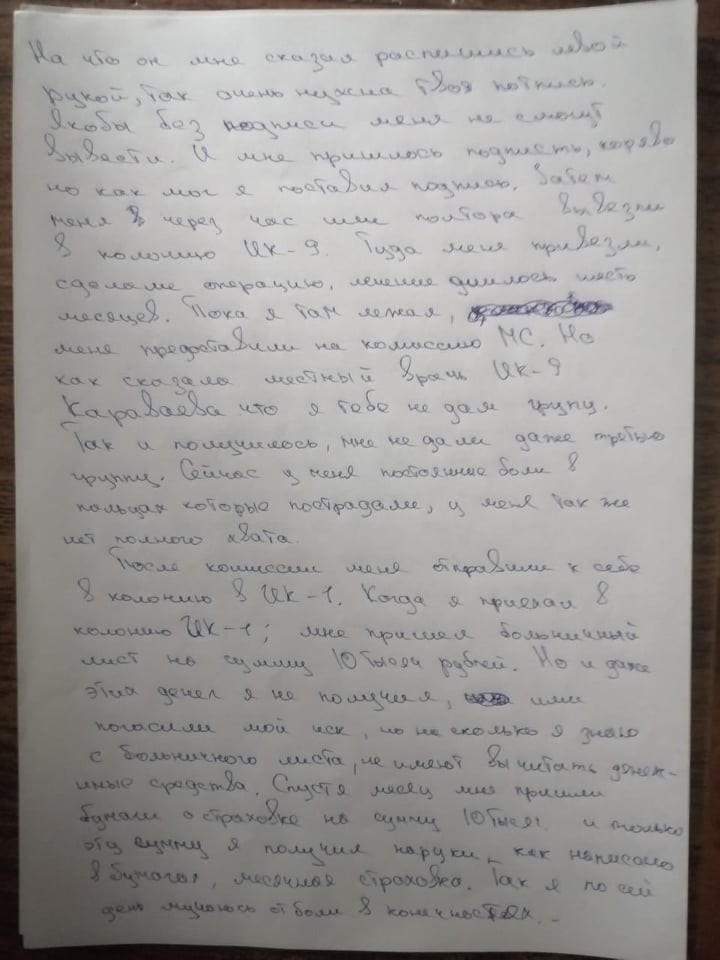 На что он мне сказал распишись левой
рукой, так очень нужна твоя потпись.
Якобы без подписи меня не смогут
вывести. И мне пришлось подписть, коряво
но как мог я поставил подпись. Затем
меня через час или полтора вывезли
в колонию ИК-9. Туда меня привезли,
сделали операцию, лечение длилось шесть
месяцев. Пока я там лежал,
меня предоставили на комиссию МС. Но
как сказала местный врачь ИК-9
Караваева что я тебе не дам групу.
Так и получилось, мне не дали даже третью
группу. Сейчас у меня постоянные боли в
пальцах которые пострадали, у меня так же
нет полного хвата.
После комиссии меня отправили к себе
в колонию в ИК-1. Когда я приехал в
колонию ИК-1; мне пришел больничный
лист на сумму 10 тысяч рублей. Но и даже
этих денег я не получил, ими
погасили мой иск, но на сколько я знаю
с больничного листа, не имеют вычитать денеж-
ные средства. Спустя месяц мне пришли
бумаги о страховке на сумму 10 тысяч и только
эту сумму я получил наруки, как написано
в бумагах, месячная страховка. Так я по сей
день мучаюсь от боли в конечностях.